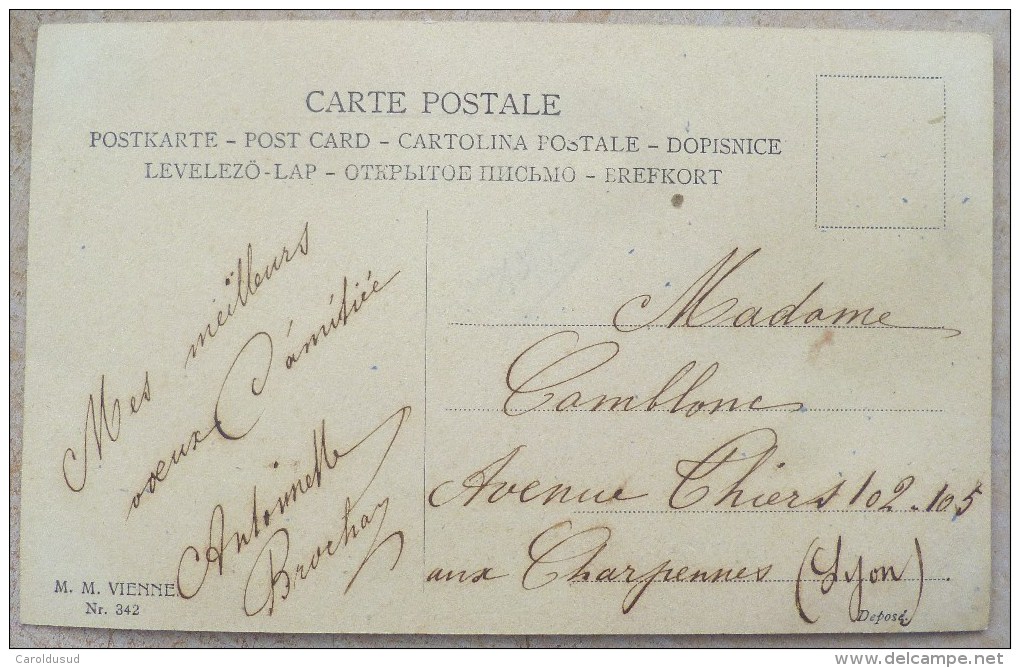 CARTE POSTALE
POSTKARTE – POST CARD – CARTOLINA POSTALE – DOPISNICE
LEVELEZÖ-LAP – ОТКРЫТОЕ ПИСЬМО – BREFKORT
Mes meilleurs
voeux d'amitiée
Antoinette
Brochay
M. M. VIENNE.
Nr. 342
Madame
Comblonc
Avenue Thiers 102-105
aux Charpennes (Lyon)
Deposé.
Caroldusud
www.delcampe.net